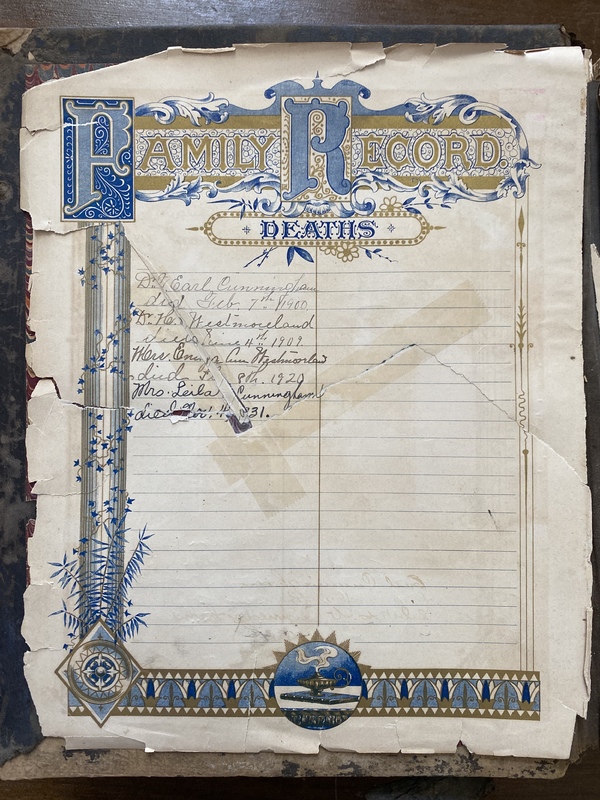 FAMILY RECORD.
DEATHS
Dr. Earl Cunningham
died Feb. 7th 1900.
Westmoreland
died June 4th 1909
Mrs. Ann Westmorland
died 8th. 1920
Mrs. Leila Cunningham
died Nov.